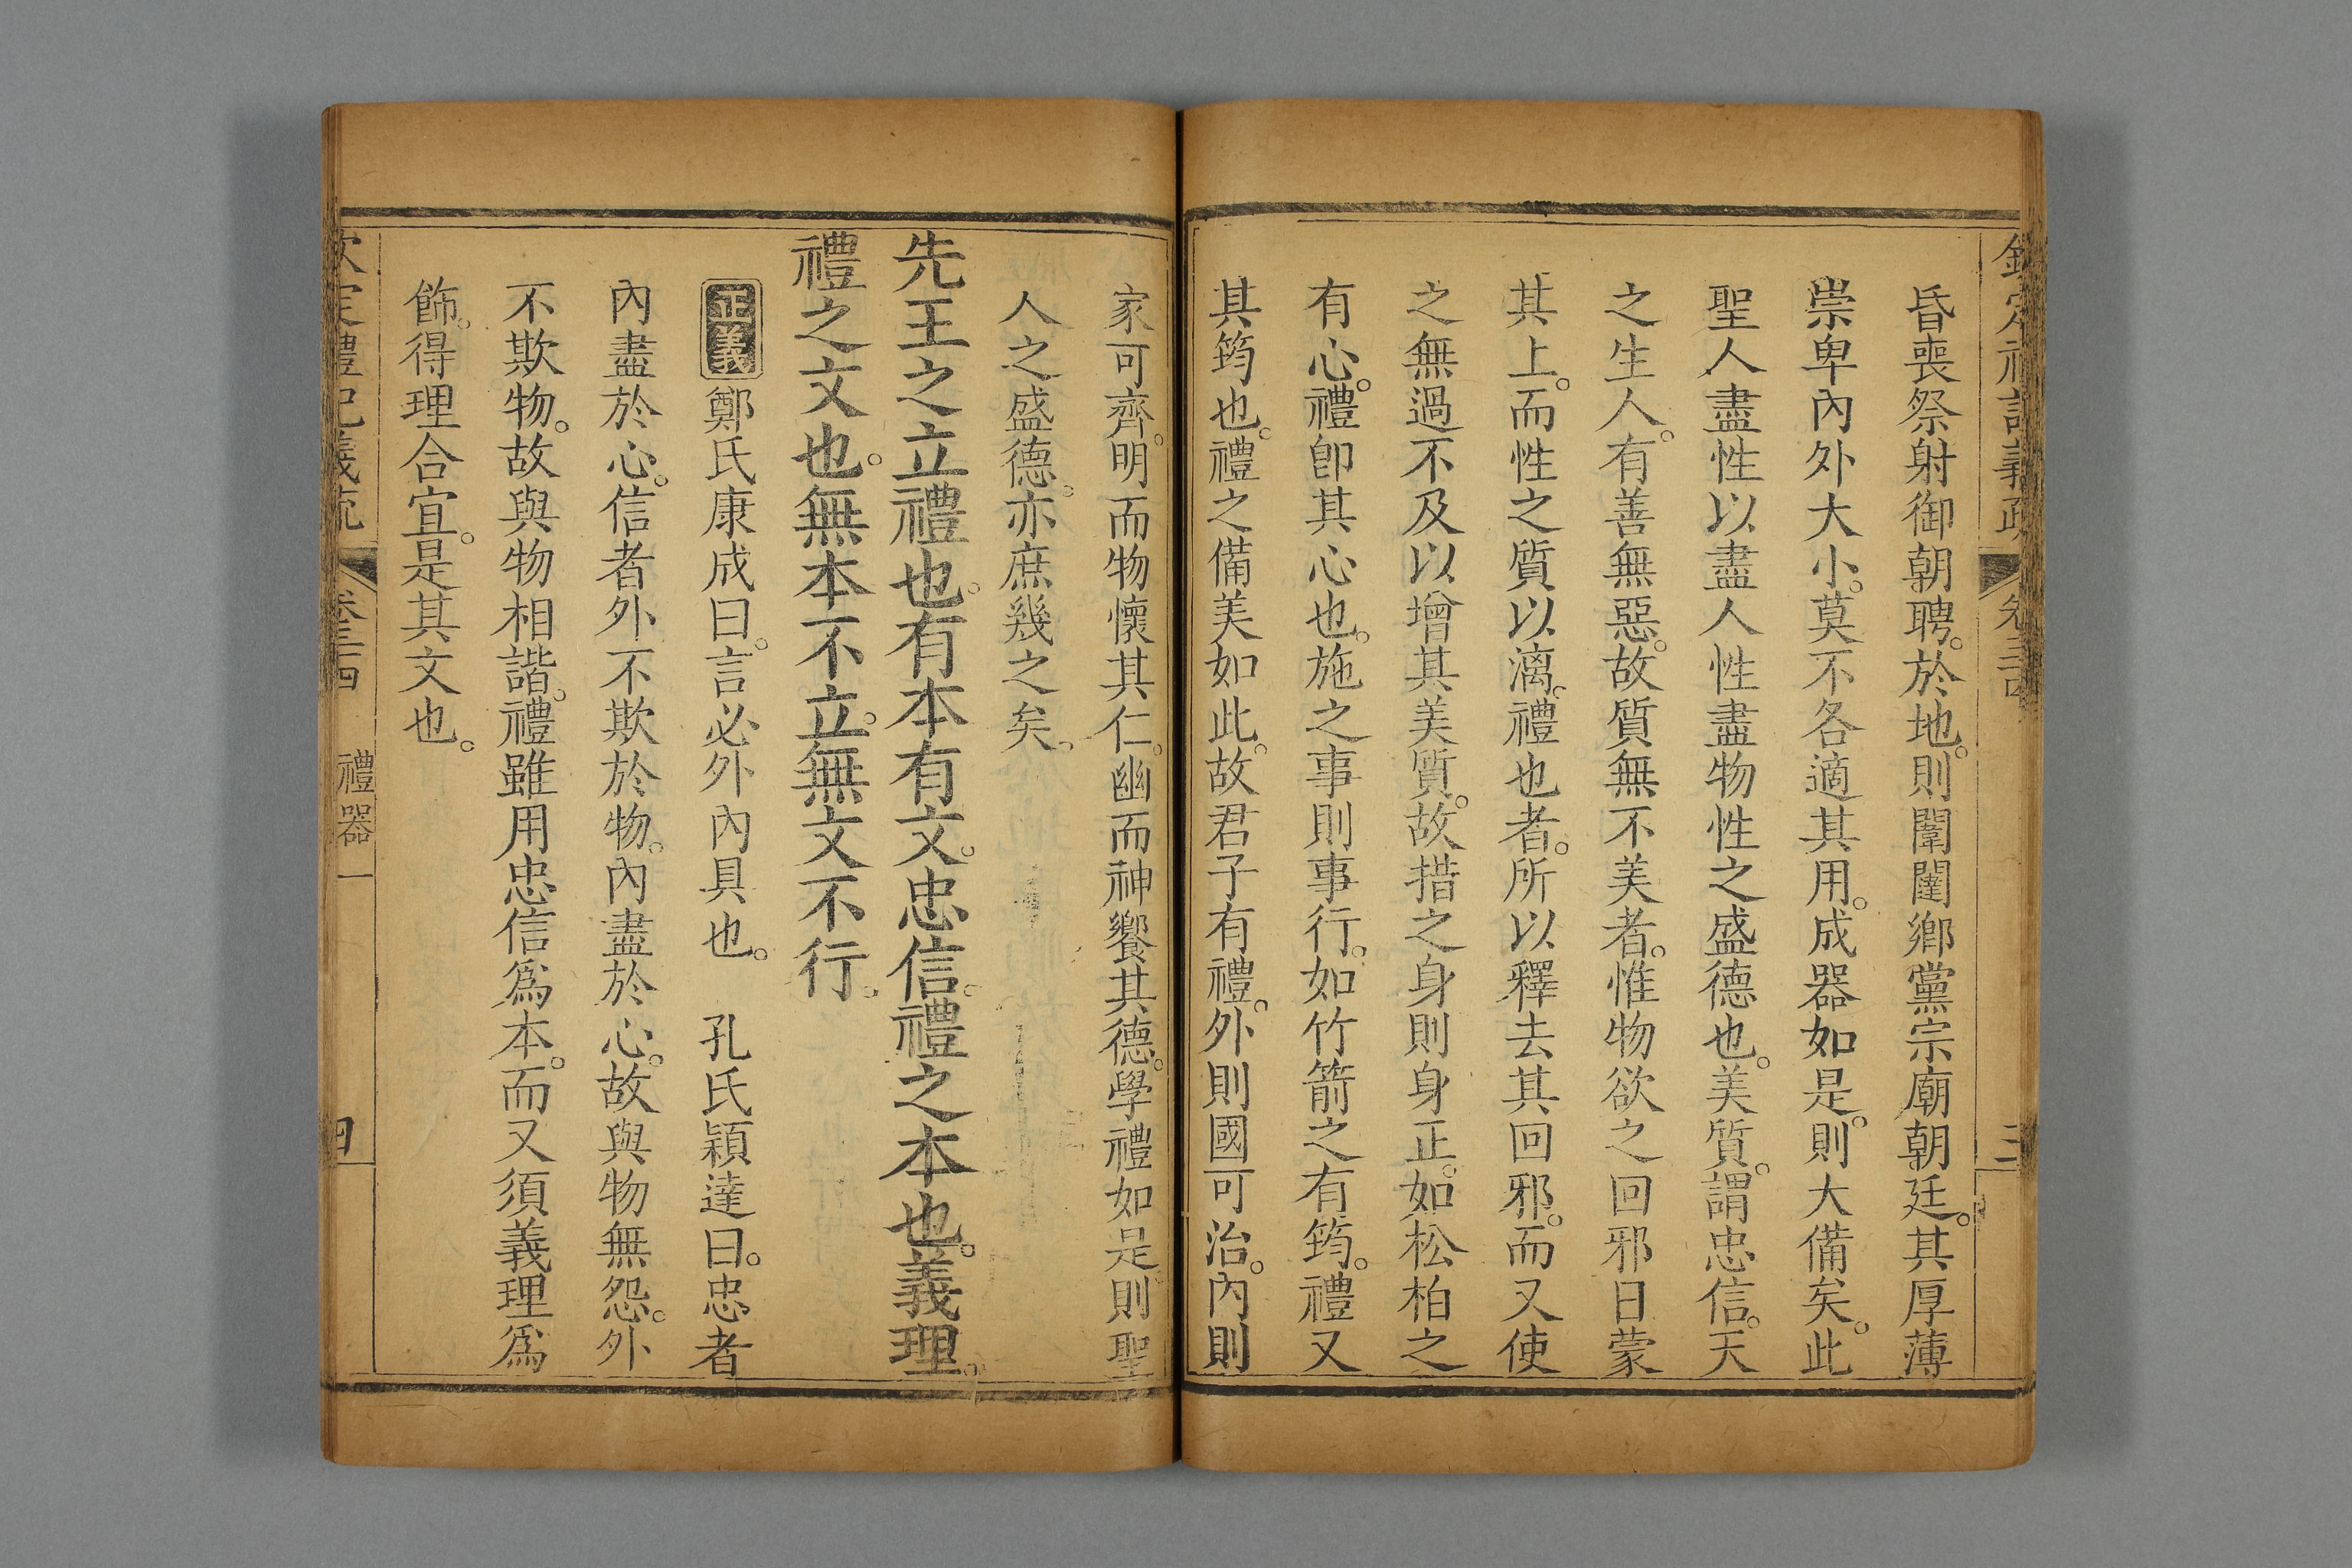 欽定禮記義疏 卷三十四 三
昏喪祭射御朝聘。於地。則闈闥鄉黨宗廟朝廷。其厚薄
崇卑內外大小。莫不各適其用。成器如是。則大備矣。此
聖人盡性以盡人性盡物性之盛德也。美質。謂忠信。天
之生人。有善無惡。故質無不美者。惟物欲之回邪日蒙
其上。而性之質以漓。禮也者。所以釋去其回邪。而又使
之無過不及以增其美質。故措之身則身正。如松柏之
有心。禮卽其心也。施之事則事行。如竹箭之有筠。禮又
其筠也。禮之備美如此。故君子有禮。外則國可治。內則
家可齊。明而物懷其仁。幽而神饗其德。學禮如是。則聖
人之盛德。亦庶幾之矣。
先王之立禮也。有本有文。忠信。禮之本也。義理。
禮之文也。無本不立。無文不行。
正義 鄭氏康成曰。言必外內具也。 孔氏穎達曰。忠者
內盡於心。信者外不欺於物。內盡於心。故與物無怨。外
不欺物。故與物相諧。禮雖用忠信爲本。而又須義理爲
飾。得理合宜。是其文也。
欽定禮記義疏 卷三十四 禮器一 四